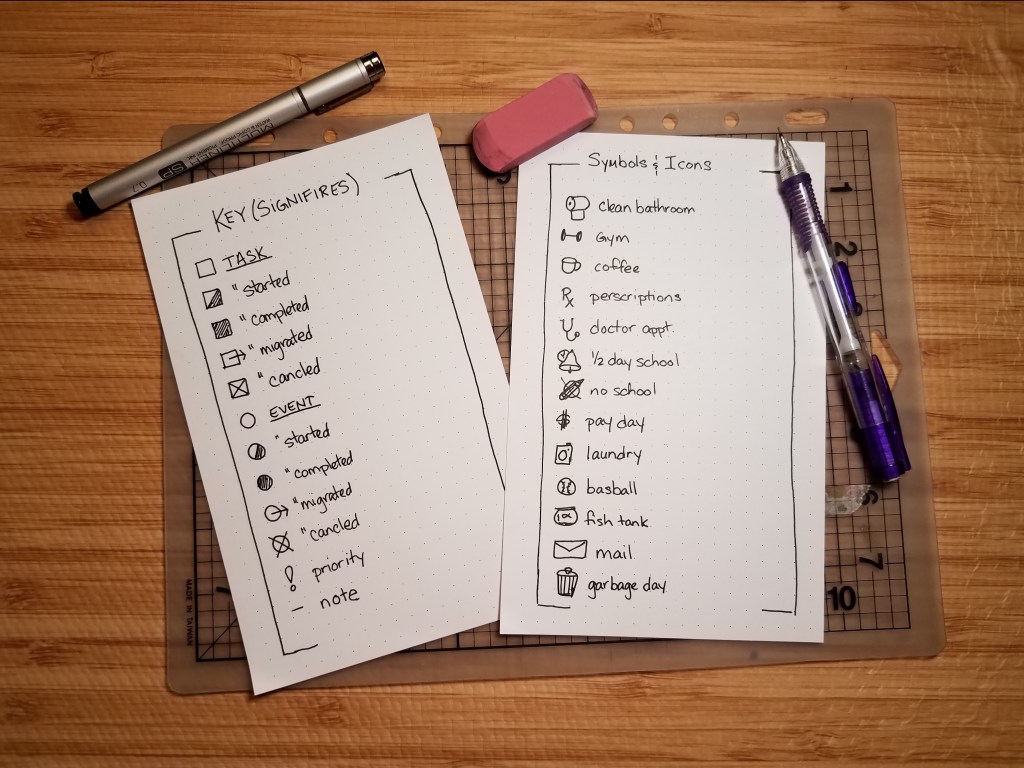 KEY (SIGNIFIRES)
TASK
" started
" completed
" migrated
" cancled
EVENT
" started
" completed
" migrated
" cancled
! priority
– note
Symbols & Icons
clean bathroom
Gym
coffee
Rx perscriptions
doctor appt.
1/2 day school
no school
$ pay day
laundry
basball
fish tank
mail
garbage day
1
2
6
7
10
MADE IN TAIWAN